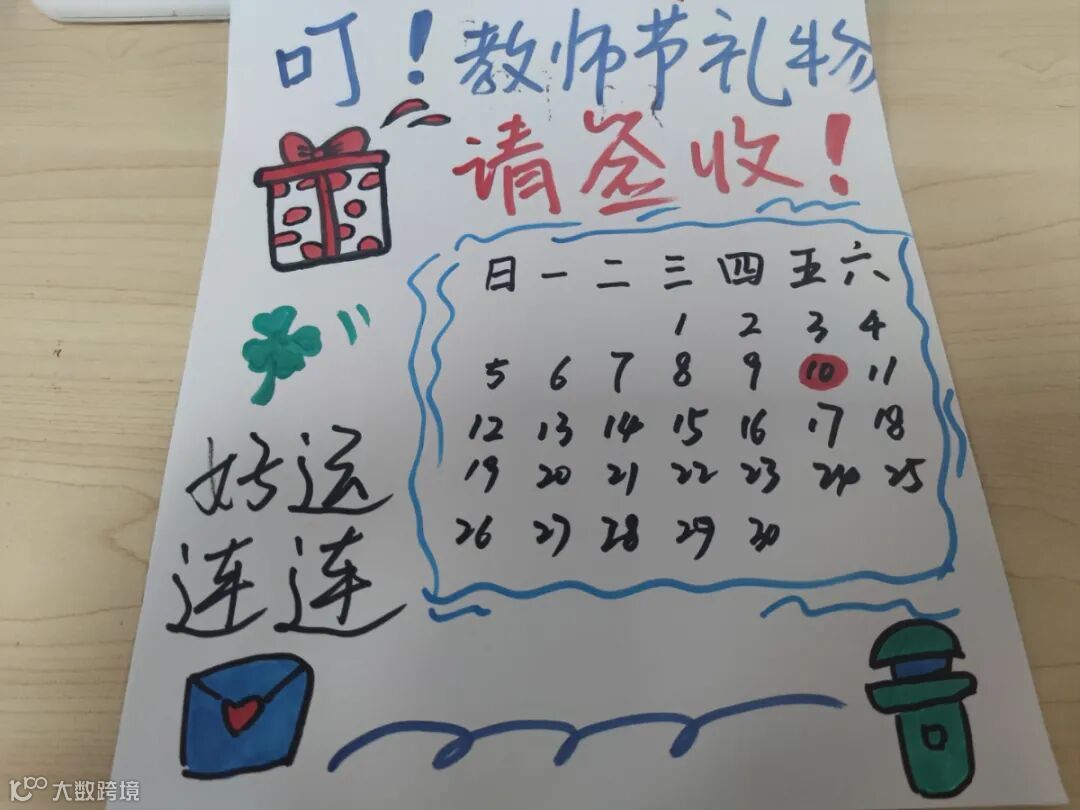 叮！教师节礼物
请签收！
日 一 二 三 四 五 六
1 2 3 4
5 6 7 8 9 10 11
12 13 14 15 16 17 18
19 20 21 22 23 24 25
26 27 28 29 30
好运
连连
大数跨境